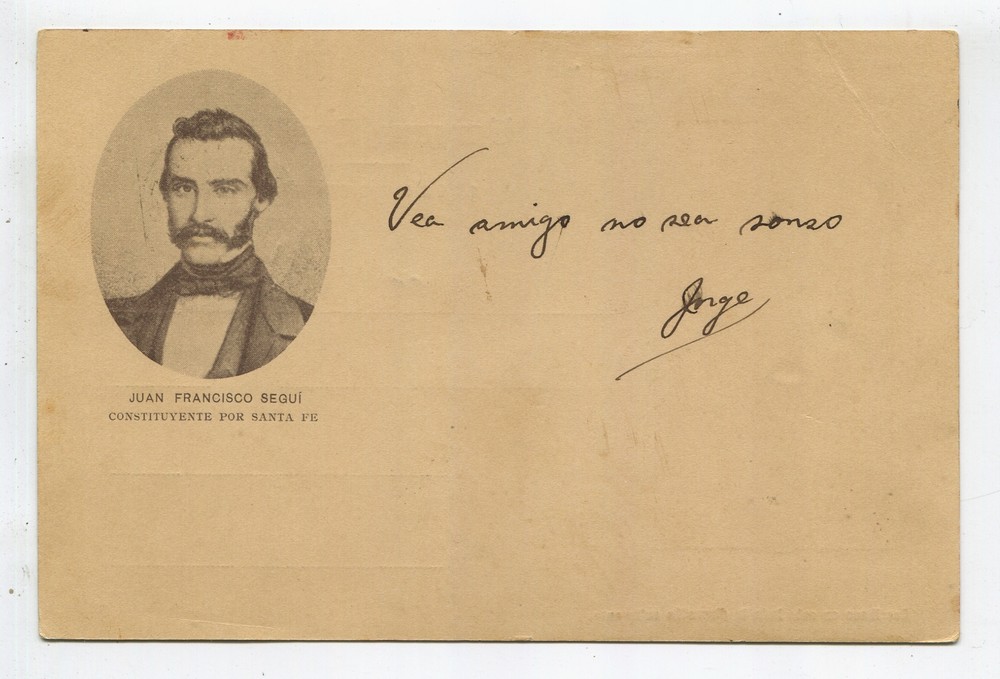 Vea amigo no sea sonso
Jorge
JUAN FRANCISCO SEGUÍ
CONSTITUYENTE POR SANTA FE